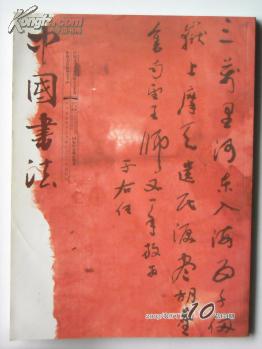 中國書法
三萬里河東入海五千仞
嶽上摩天遺民淚盡胡塵
南望王師又一年
于右任
10